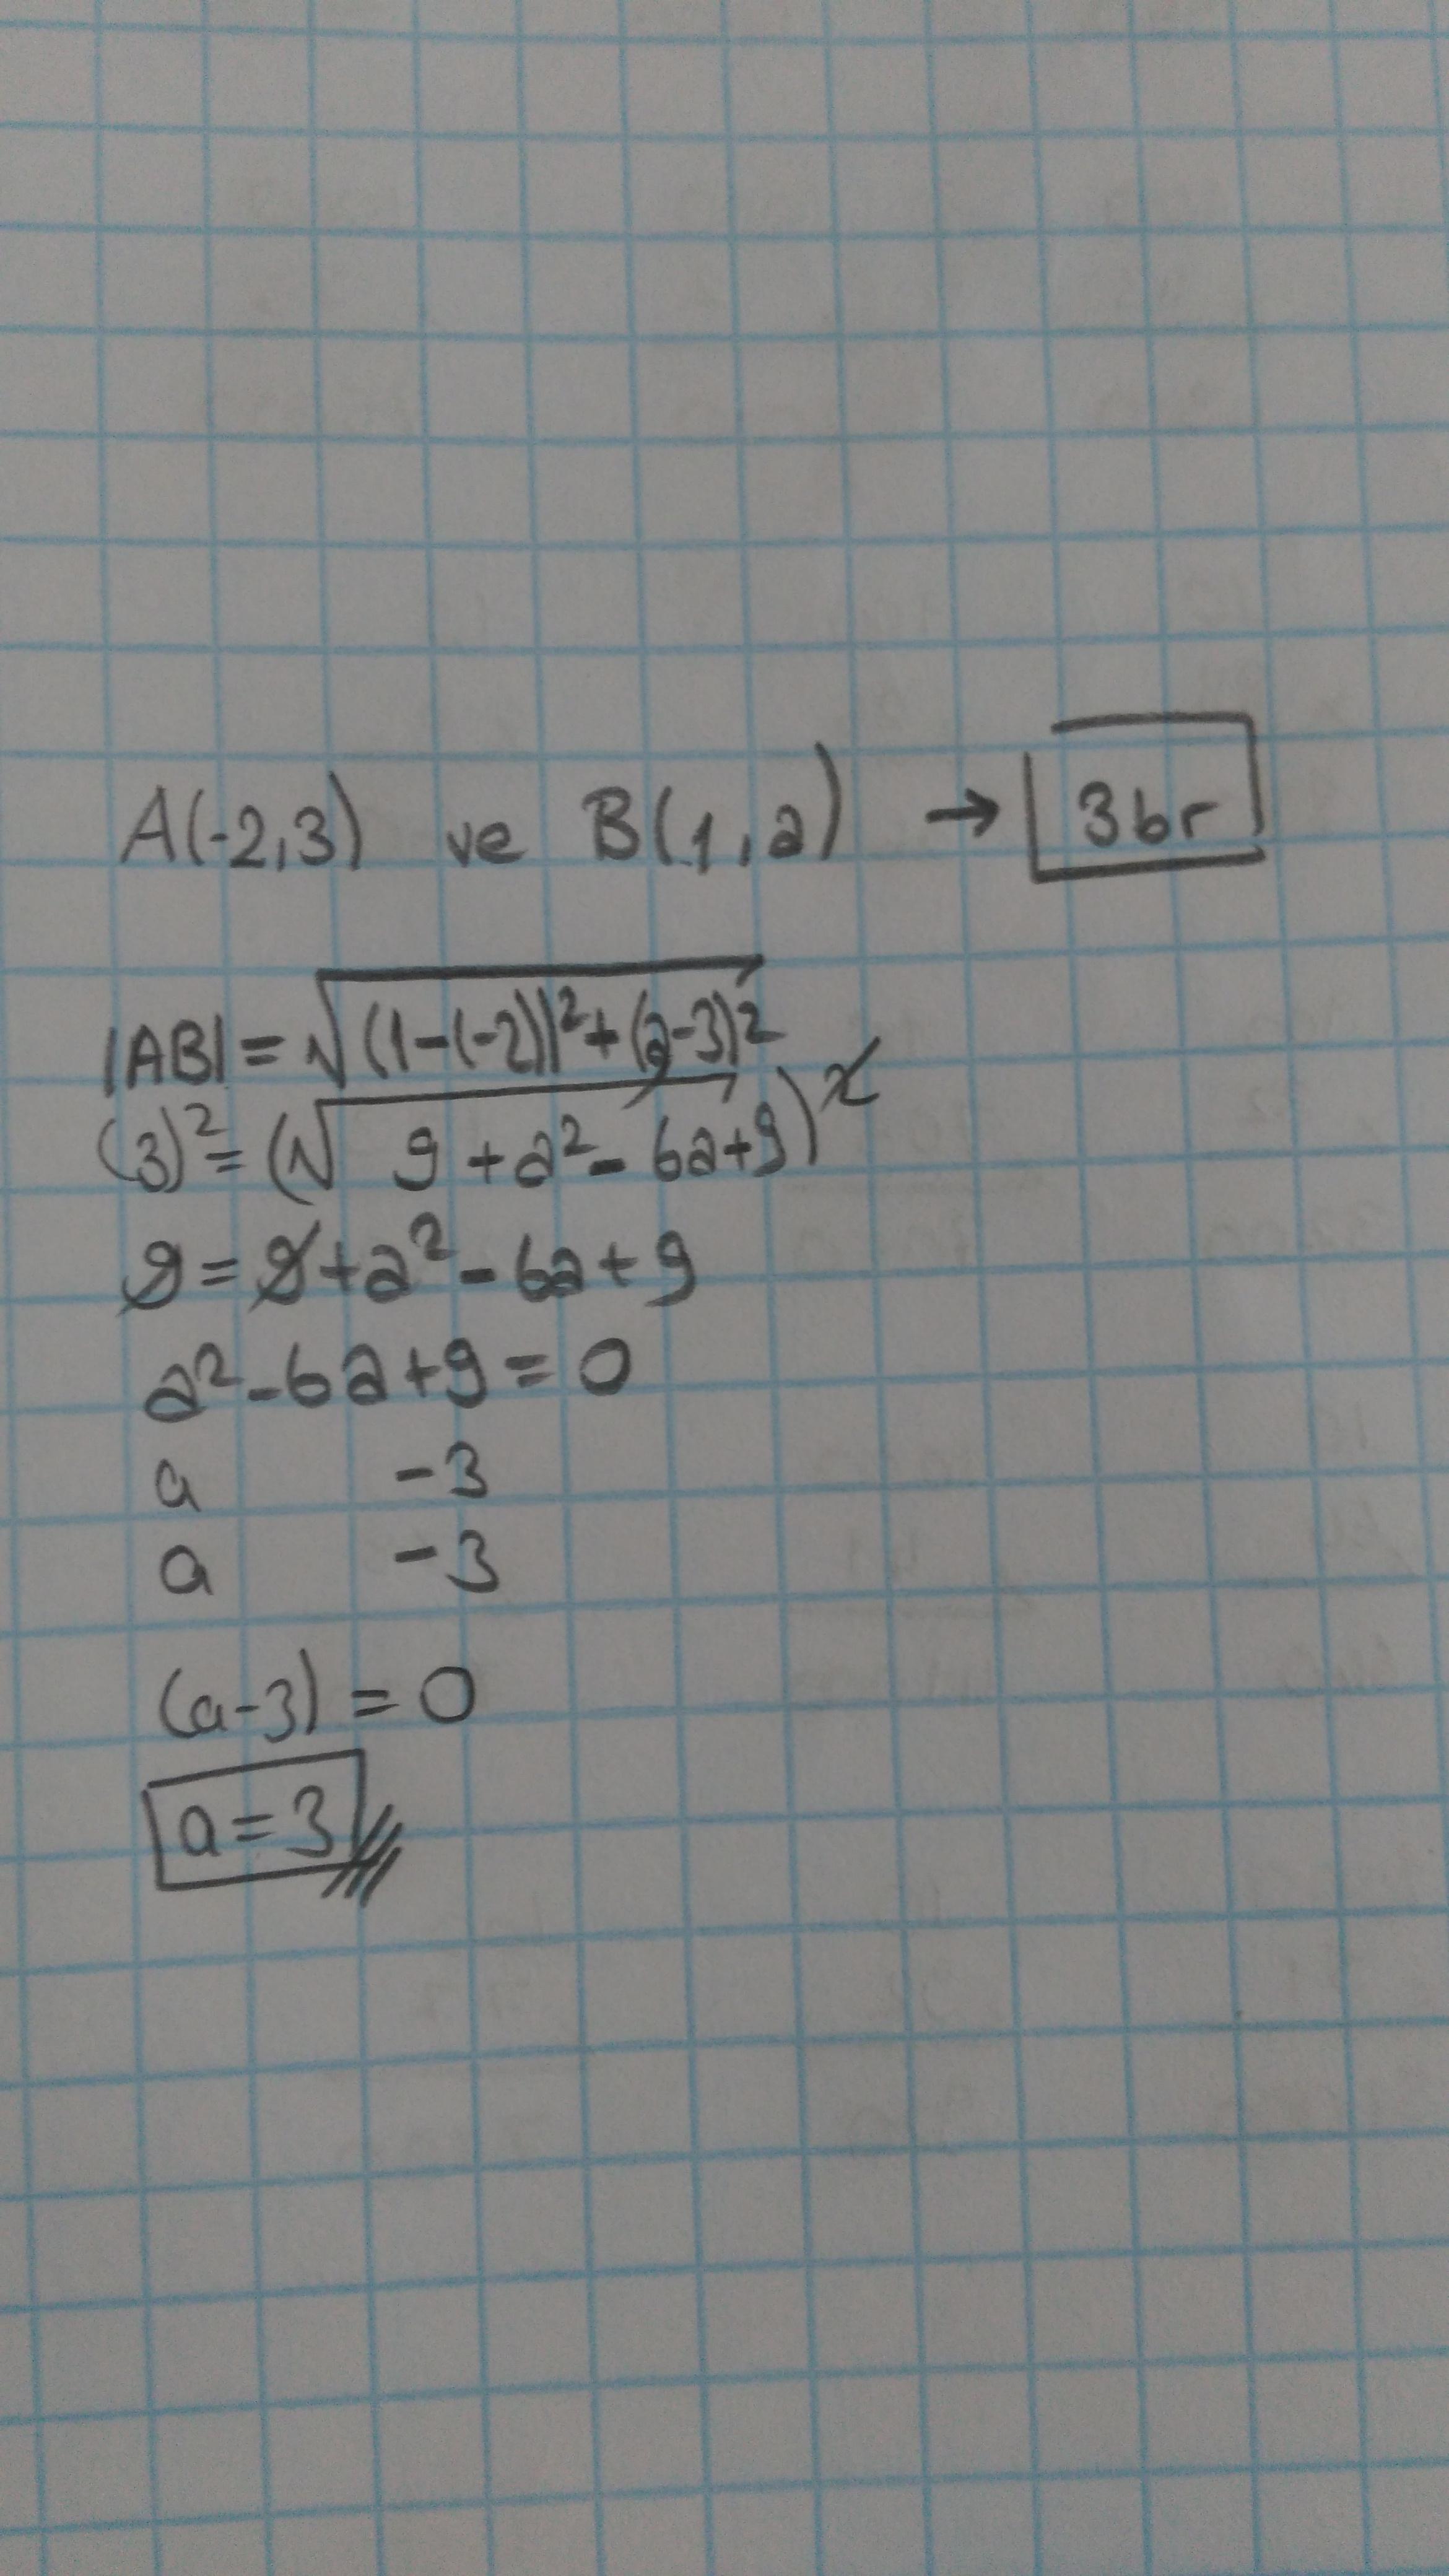 A(-2,3) ve B(1,a) → 3br
|AB| = √(1-(-2))²+(a-3)²
(3)² = (√9+a²-6a+9)²
9 = 9+a²-6a+9
a²-6a+9 = 0
a -3
a -3
(a-3) = 0
a = 3